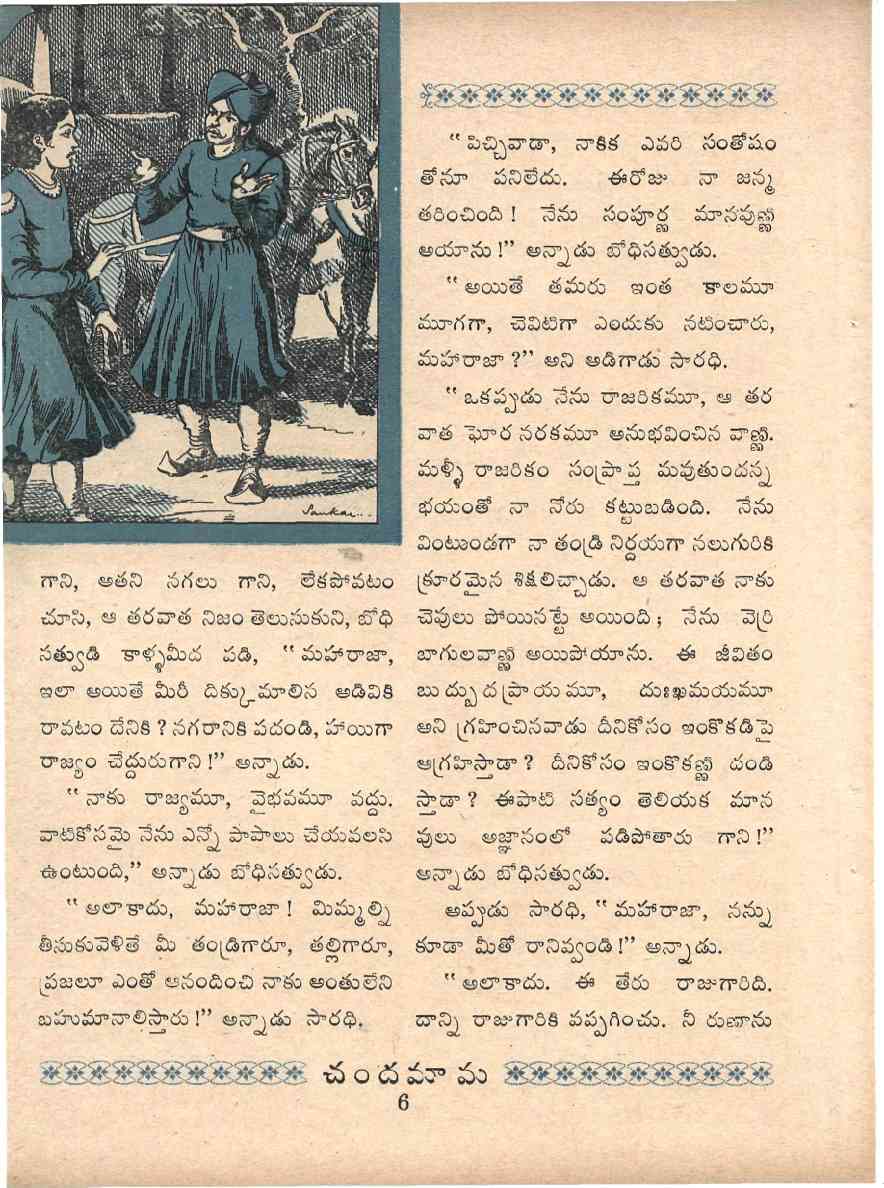 Sankar...
గాని, అతని నగలు గాని, లేకపోవటం
చూసి, ఆ తరవాత నిజం తెలుసుకుని, బోధి
సత్వుడి కాళ్ళమీద పడి, “మహారాజా,
ఇలా అయితే మీరీ దిక్కుమాలిన అడివికి
రావటం దేనికి ? నగరానికి పదండి, హాయిగా
రాజ్యం చేద్దురుగాని !” అన్నాడు.
“నాకు రాజ్యమూ, వైభవమూ వద్దు.
వాటికోసమై నేను ఎన్నో పాపాలు చేయవలసి
ఉంటుంది,” అన్నాడు బోధిసత్వుడు.
“అలాకాదు, మహారాజా ! మిమ్మల్ని
తీసుకువెళితే మీ తండ్రిగారూ, తల్లిగారూ,
ప్రజలూ ఎంతో ఆనందించి నాకు అంతులేని
బహుమానాలిస్తారు !” అన్నాడు సారథి.
“పిచ్చివాడా, నాకిక ఎవరి సంతోషం
తోనూ పనిలేదు. ఈరోజు నా జన్మ
తరించింది ! నేను సంపూర్ణ మానవుణ్ణి
అయాను !” అన్నాడు బోధిసత్వుడు.
“అయితే తమరు ఇంత కాలమూ
మూగగా, చెవిటిగా ఎందుకు నటించారు,
మహారాజా ?” అని అడిగాడు సారథి.
“ఒకప్పుడు నేను రాజరికమూ, ఆ తర
వాత ఘోర నరకమూ అనుభవించిన వాణ్ణి.
మళ్ళీ రాజరికం సంప్రాప్త మవుతుందన్న
భయంతో నా నోరు కట్టుబడింది. నేను
వింటుండగా నా తండ్రి నిర్దయగా నలుగురికి
క్రూరమైన శిక్షలిచ్చాడు. ఆ తరవాత నాకు
చెవులు పోయినట్టే అయింది ; నేను వెర్రి
బాగులవాణ్ణి అయిపోయాను. ఈ జీవితం
బుద్బుదప్రాయమూ, దుఃఖమయమూ
అని గ్రహించినవాడు దీనికోసం ఇంకొకడిపై
ఆగ్రహిస్తాడా ? దీనికోసం ఇంకొకణ్ణి దండి
స్తాడా ? ఈపాటి సత్యం తెలియక మాన
వులు అజ్ఞానంలో పడిపోతారు గాని !”
అన్నాడు బోధిసత్వుడు.
అప్పుడు సారథి, “మహారాజా, నన్ను
కూడా మీతో రానివ్వండి !” అన్నాడు.
“అలాకాదు. ఈ తేరు రాజుగారిది.
దాన్ని రాజుగారికి వప్పగించు. నీ రుణాను
చందమామ
6